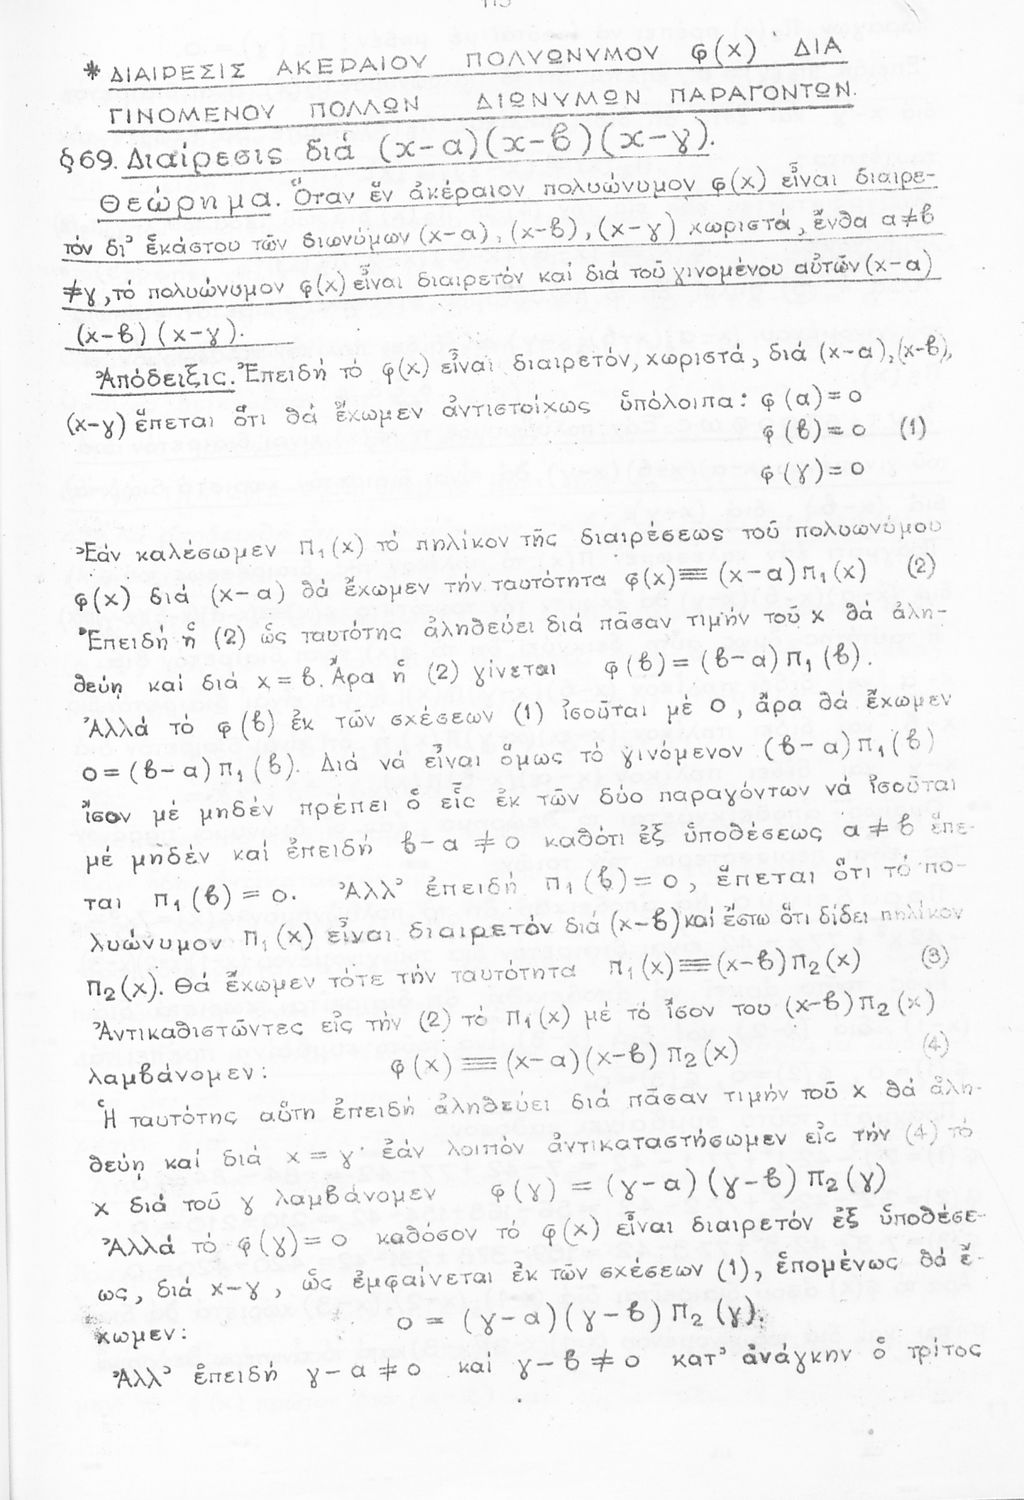 * ΔΙΑΙΡΕΣΙΣ ΑΚΕΡΑΙΟΥ ΠΟΛΥΩΝΥΜΟΥ φ(x) ΔΙΑ
ΓΙΝΟΜΕΝΟΥ ΠΟΛΛΩΝ ΔΙΩΝΥΜΩΝ ΠΑΡΑΓΟΝΤΩΝ.
§69. Διαίρεσις διά (x-α)(x-β)(x-γ).
Θεώρημα. Ὅταν ἕν ἀκέραιον πολυώνυμον φ(x) εἶναι διαιρε-
τόν δι' ἑκάστου τῶν διωνύμων (x-α), (x-β), (x-γ) χωριστά, ἔνθα α≠β
≠γ, τό πολυώνυμον φ(x) εἶναι διαιρετόν καί διά τοῦ γινομένου αὐτῶν (x-α)
(x-β)(x-γ).
Ἀπόδειξις. Ἐπειδή τό φ(x) εἶναι διαιρετόν, χωριστά, διά (x-α), (x-β),
(x-γ) ἕπεται ὅτι θά ἔχωμεν ἀντιστοίχως ὑπόλοιπα: φ(α)=0
φ(β)=0 (1)
φ(γ)=0
Ἐάν καλέσωμεν Π₁(x) τό πηλίκον τῆς διαιρέσεως τοῦ πολυωνύμου
φ(x) διά (x-α) θά ἔχωμεν τήν ταυτότητα φ(x)≡(x-α)Π₁(x) (2)
Ἐπειδή ἡ (2) ὡς ταυτότης ἀληθεύει διά πᾶσαν τιμήν τοῦ x θά ἀλη-
θεύῃ καί διά x=β. Ἄρα ἡ (2) γίνεται φ(β)=(β-α)Π₁(β).
Ἀλλά τό φ(β) ἐκ τῶν σχέσεων (1) ἰσοῦται μέ 0, ἄρα θά ἔχωμεν
0=(β-α)Π₁(β). Διά νά εἶναι ὅμως τό γινόμενον (β-α)Π₁(β)
ἴσον μέ μηδέν πρέπει ὁ εἷς ἐκ τῶν δύο παραγόντων νά ἰσοῦται
μέ μηδέν καί ἐπειδή β-α≠0 καθότι ἐξ ὑποθέσεως α≠β ἕπε-
ται Π₁(β)=0. Ἀλλ' ἐπειδή Π₁(β)=0, ἕπεται ὅτι τό πο-
λυώνυμον Π₁(x) εἶναι διαιρετόν διά (x-β) καί ἔστω ὅτι δίδει πηλίκον
Π₂(x). Θά ἔχωμεν τότε τήν ταυτότητα Π₁(x)≡(x-β)Π₂(x) (3)
Ἀντικαθιστῶντες εἰς τήν (2) τό Π₁(x) μέ τό ἴσον του (x-β)Π₂(x)
λαμβάνομεν: φ(x)≡(x-α)(x-β)Π₂(x) (4)
Ἡ ταυτότης αὕτη ἐπειδή ἀληθεύει διά πᾶσαν τιμήν τοῦ x θά ἀλη-
θεύῃ καί διά x=γ· ἐάν λοιπόν ἀντικαταστήσωμεν εἰς τήν (4) τό
x διά τοῦ γ λαμβάνομεν φ(γ)=(γ-α)(γ-β)Π₂(γ)
Ἀλλά τό φ(γ)=0 καθόσον τό φ(x) εἶναι διαιρετόν ἐξ ὑποθέσε-
ως, διά x-γ, ὡς ἐμφαίνεται ἐκ τῶν σχέσεων (1), ἑπομένως θά ἔ-
χωμεν: 0=(γ-α)(γ-β)Π₂(γ).
Ἀλλ' ἐπειδή γ-α≠0 καί γ-β≠0 κατ' ἀνάγκην ὁ τρίτος